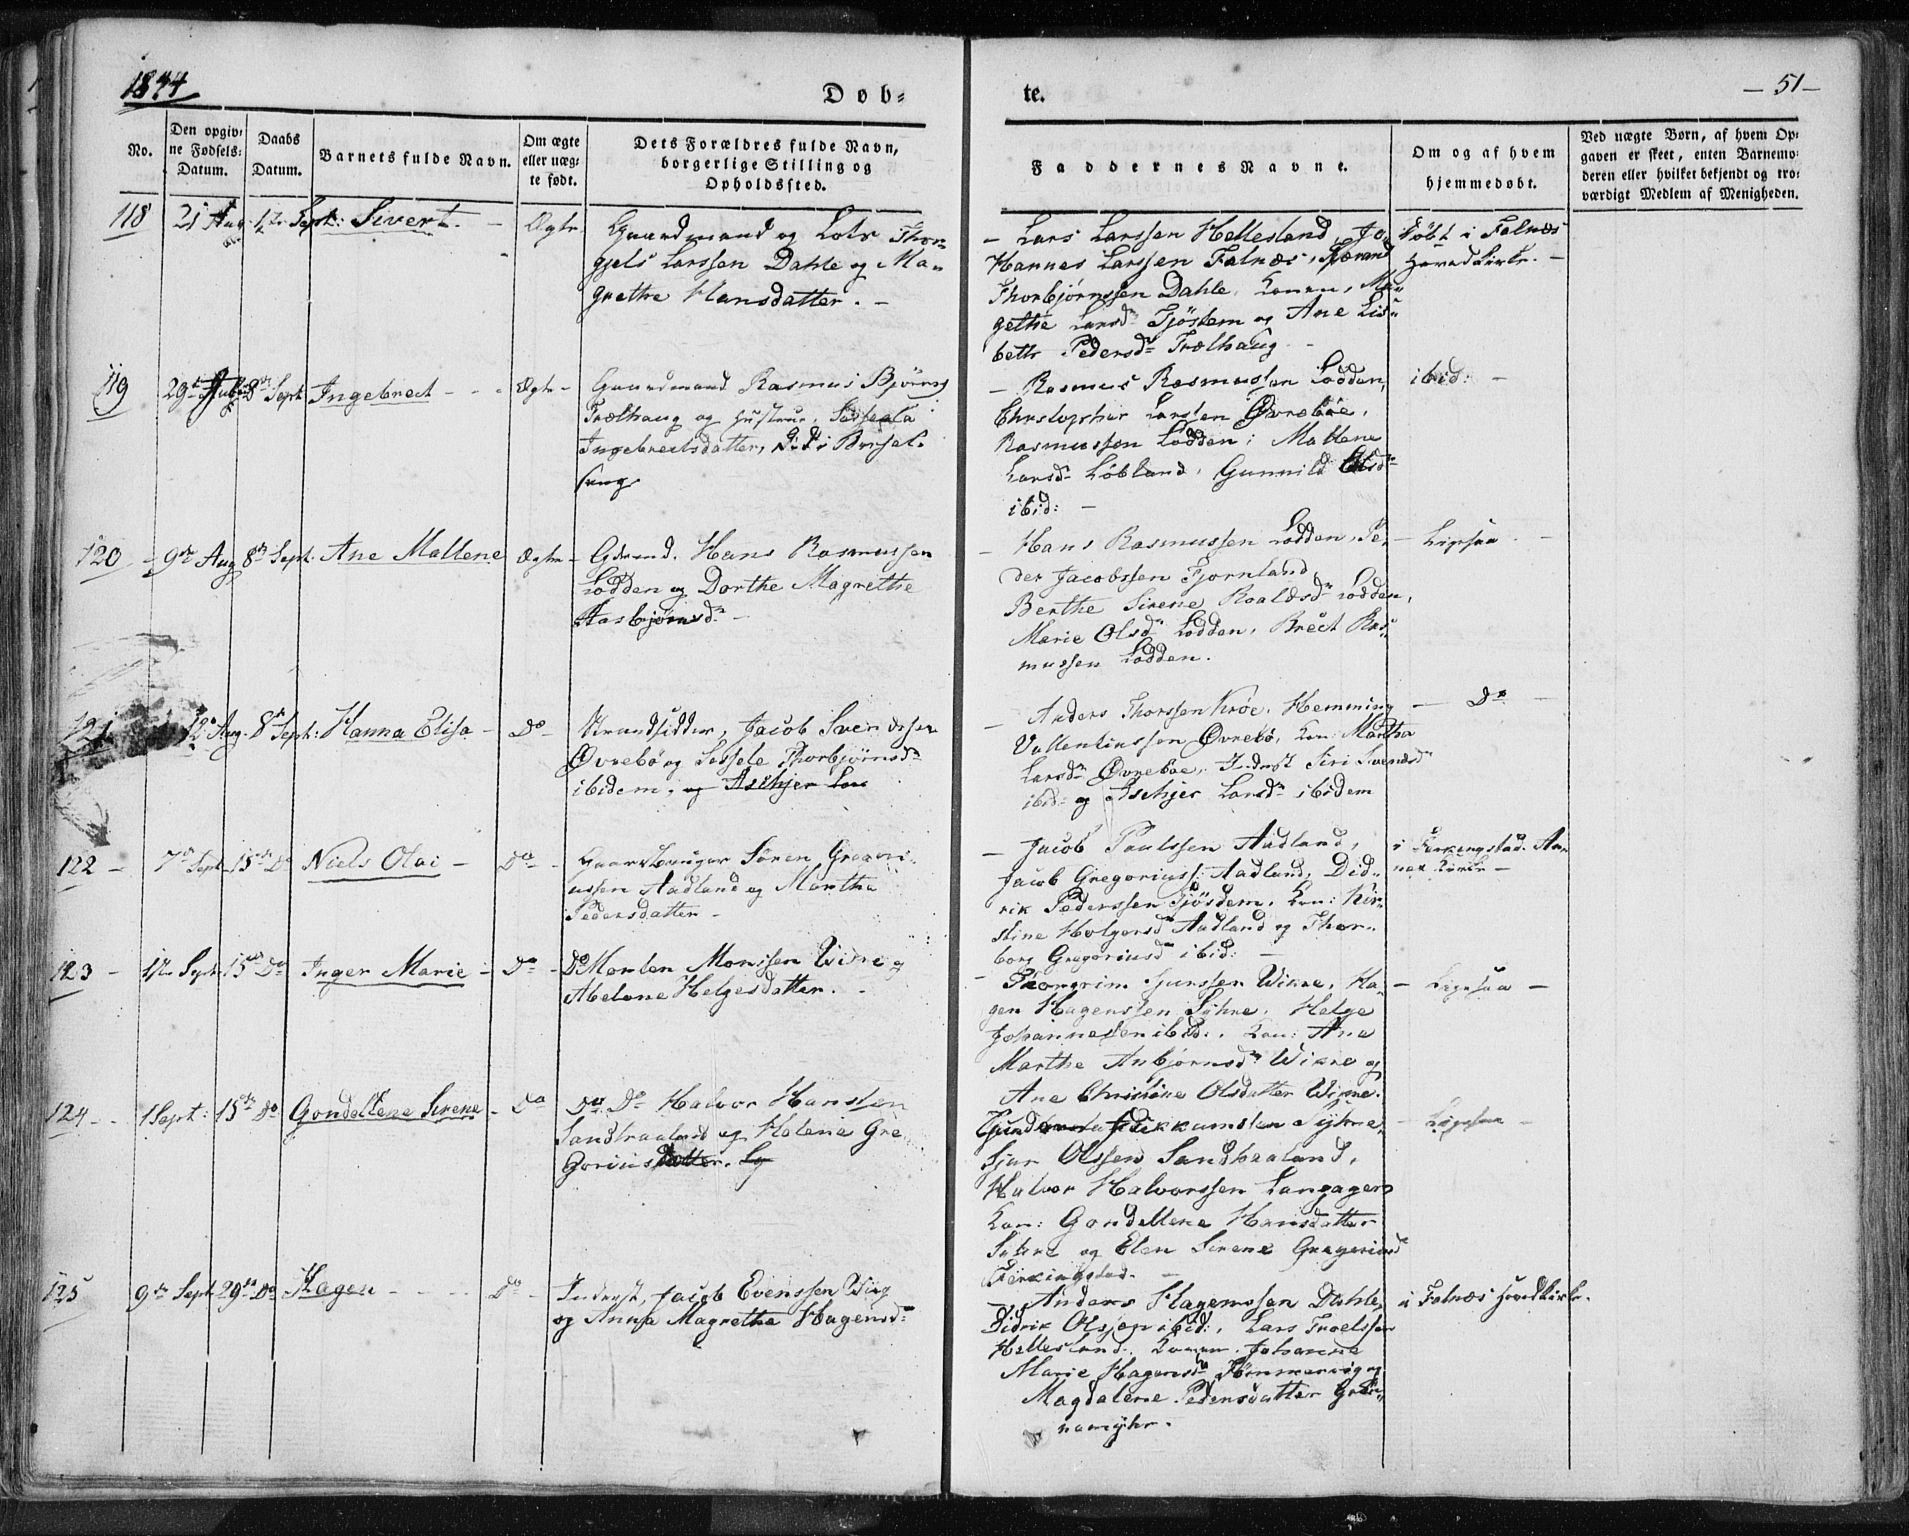 1844
Døb=
te.
— 51 —
No.
Den opgiv=
ne Fødsels=
Datum.
Daabs
Datum.
Barnets fulde Navn.
Om ægte
eller uæg=
te født.
Dets Forældres fulde Navn,
borgerlige Stilling og
Opholdssted.
Faddernes Navne.
Om og af hvem
hjemmedøbt.
Ved uægte Børn, af hvem Op=
gaven er skeet, enten Barnemo=
deren eller hvilket bekjendt og tro=
værdigt Medlem af Menigheden.
118 21 Aug. 1ste Sept: Sivert. – Ægte
Gaardmand og Lods Thor-
gjels Larssen Dahle og Ma-
grethe Hansdatter. –
– Lars Larssen Hellesland, Jo-
hannes Larssen Falnæs,
Thorbjørnssen Dahle, Konen, Ma-
gethe Larsd. Tjøstem og Ane Lis-
beth Pedersd. Trælhaug –
Døbt i Falnæs
Hovedkirke. –
119 29 8de Sept Ingebrect – – Ægte –
Gaardmand Rasmus Bjørns
Trælhaug og Hustrue,
Ingebrectsdatter,
– Rasmus Rasmussen Lodden,
Christopher Larssen Øvrebøe,
Rasmussen Lodden; Mallene
Larsd. Løbland, Gunnild Olsd.
ibid: –
ibid: –
120 – 9de Aug 8de Sept. Ane Mallene Ægte –
Gdmd. Hans Rasmussen
Lodden og Dorthe Magrethe
Aasbjørnsd. –
– Hans Rasmussen Lodden, Pe-
der Jacobssen Fjornland,
Berthe Sirene Roaldsd. Lodden,
Marie Olsd. Lodden, Brect Ras-
mussen Lodden.
– Ligesaa –
121 12 Aug. 8de Sept: Hanna Elisa – Do –
Strandsidder, Jacob Svendssen
Øvrebø og Sessele Thorbjørnsd.
ibidem. og Aschjer Lars
– Anders Thorssen Kröe, Hemming
Vallentinssen Øvrebö, Kon: Martha
Larsd. Øvreböe, Siri Svendsd.
ibid: og Aschjer Larsd. ibidem
– Do –
122 – 7de Sept 15de Do Niels Olai – Do –
Gaardbruger Søren Gregori-
ussen Aadland og Martha
Pedersdatter –
– Jacob Paulssen Aadland,
Jacob Gregoriuss: Aadland, Did-
rik Pederssen Tjösdem. Kon: Kir-
stine Holgersd. Aadland og Thor-
borg Gregoriusd. ibid: –
i Ferkingstad An-
nex Kirke –
123 – 1ste Sept. 15de Do Inger Marie – Do –
Do Morten Monssen Wikre og
Abelone Helgesdatter. –
– Thorgrim Wikre, Ha-
gen Hagenssen Syhre, Helge
Johannessen ibid:. Kon: Ane
Marthe Anbjørnsd. Wikre og
Ane Christine Olsdatter Wikre.
– Ligesaa –
124 – – 1 Sept: 15de Do Gondellene Sirene – Do
Do Do Halvor Hanssen
Sandhaaland og Helene Gre-
goriusdatter.
Syhre,
Sjur Olssen Sandhaaland,
Halvor Halvorssen Langager
Kon: Gondellene Hansdatter
Syhre og Elen Sirene Gregoriusd.
Ferkingstad. –
– Ligesaa –
125 9de Sept 29de Do Hagen – – – – Do –
Inderst, Jacob Evenssen Wiig
og Anna Magrethe Hagensd:
Anders Hagenssen Dahle,
Didrik Olssen ibid:, Lars Troelssen
Hellesland. Konen Johanne
Marie Hagensd. og
Magdalene Pedersdatter
i Falnæs Hovedkirke.